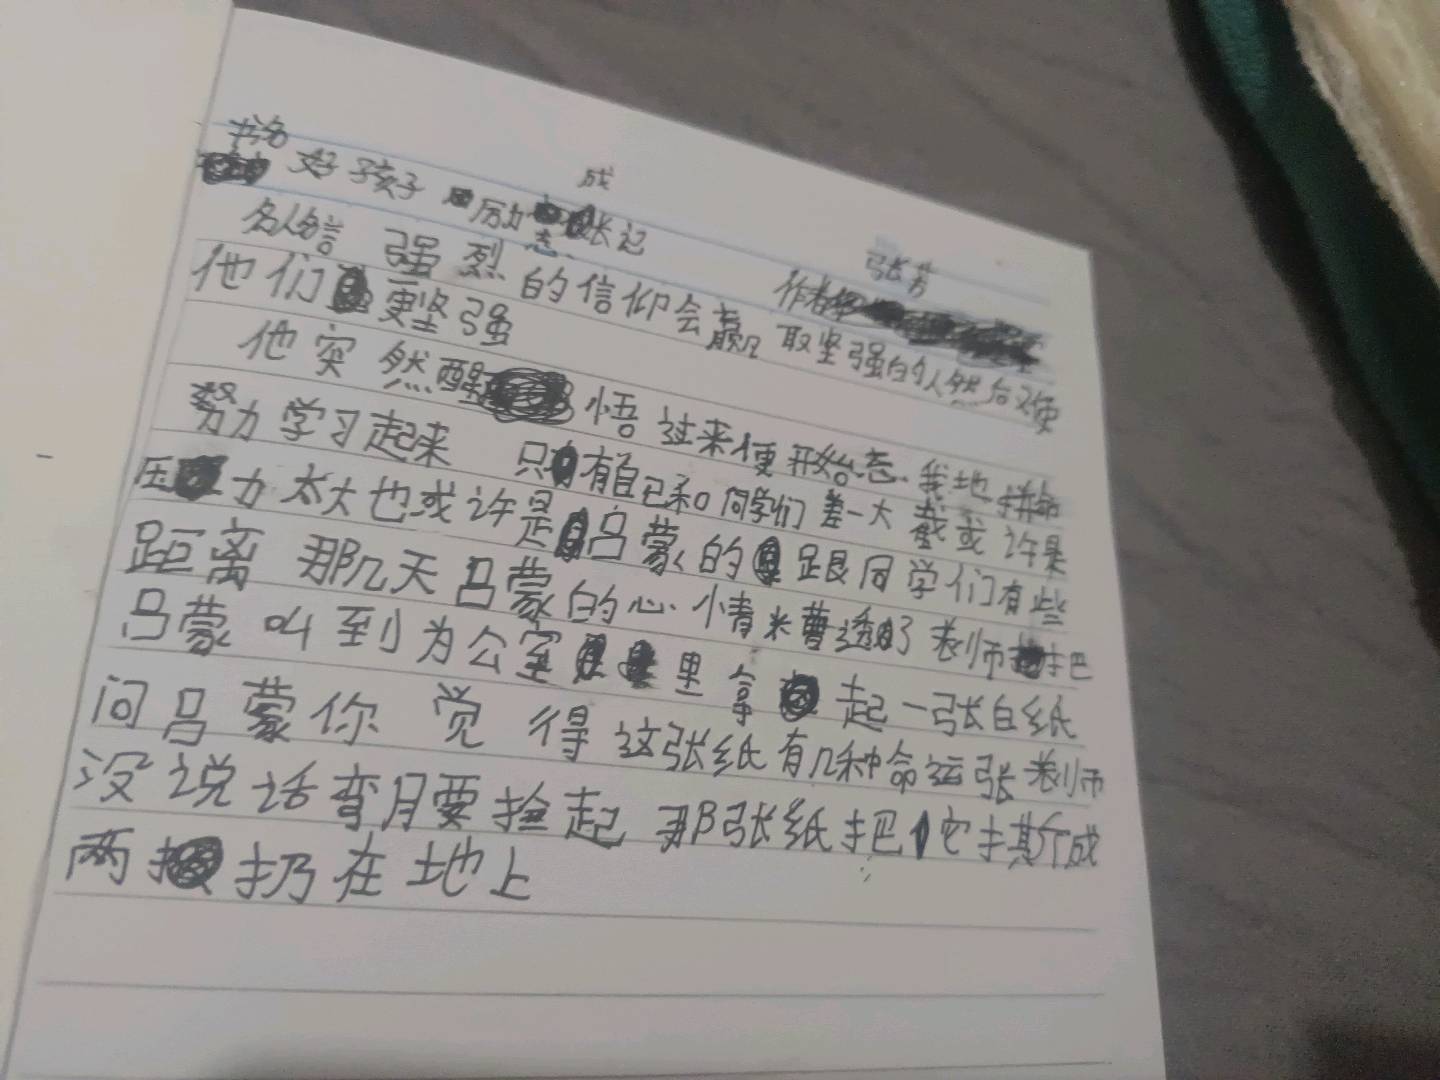 书名
好孩子 励志成长记
作者 张芳
名人名言 强烈的信仰会赢取坚强的人然后又使
他们更坚强
他突然醒悟过来便开始忘我地拼命
努力学习起来 只有自己和同学们差一大截或许是
压力太大也或许是吕蒙的跟同学们有些
距离 那几天吕蒙的心情米曹透了 老师把
吕蒙叫到为公室里拿起一张白纸
问吕蒙你觉得这张纸有几种命运张老师
没说话弯月要捡起那张纸把它撕成
两 扔在地上